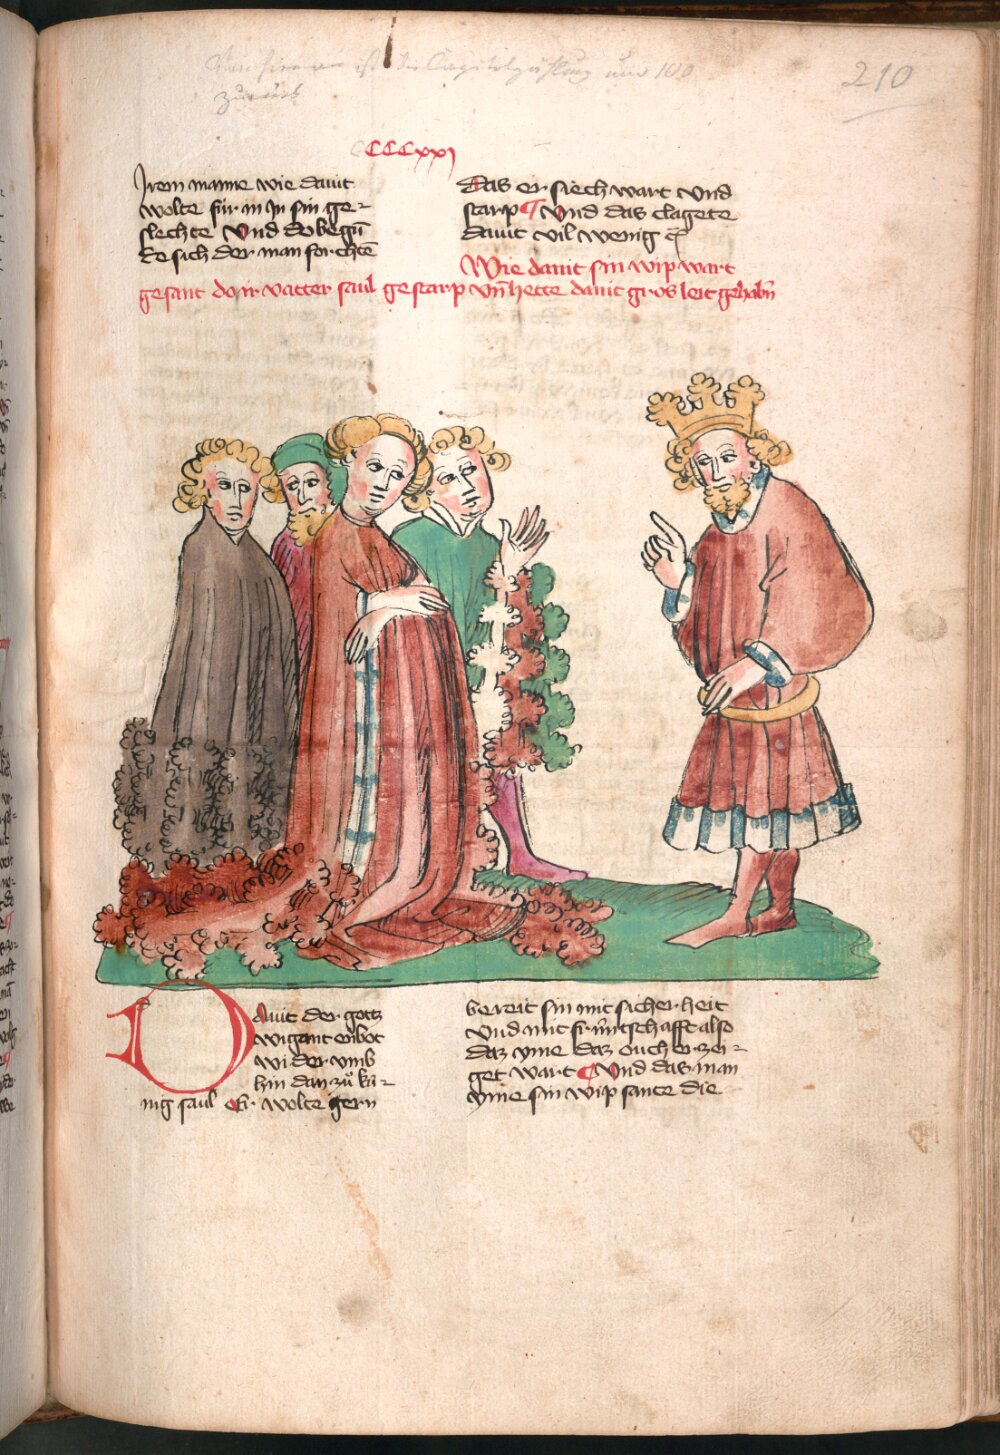 Von hier an ist die Capitelzählung um 100
zurück
210
CCCCxxj
Irem manne wie dauit
wolte fúr in jn sin ge-
slechte Vnd do begu̅
de sich der man forchte̅
Das er siech wart vnd
starp ¶ Vnd das clagete
dauit vil wenig
Wie dauit sin wip wart
gesant do ir vatter saul gestarp vn̅ hette dauit gros leit gehab̅n
DAuit der gottz
wigant enbot
wider vmb
hin dan zuͦ kú-
nig saul Er wolte gern
bereit sin mit sicherheit
vnd mit frúntschafft also
daz yme daz ouch erzei-
get wart ¶ Vnd das man
yme sin wip sante die